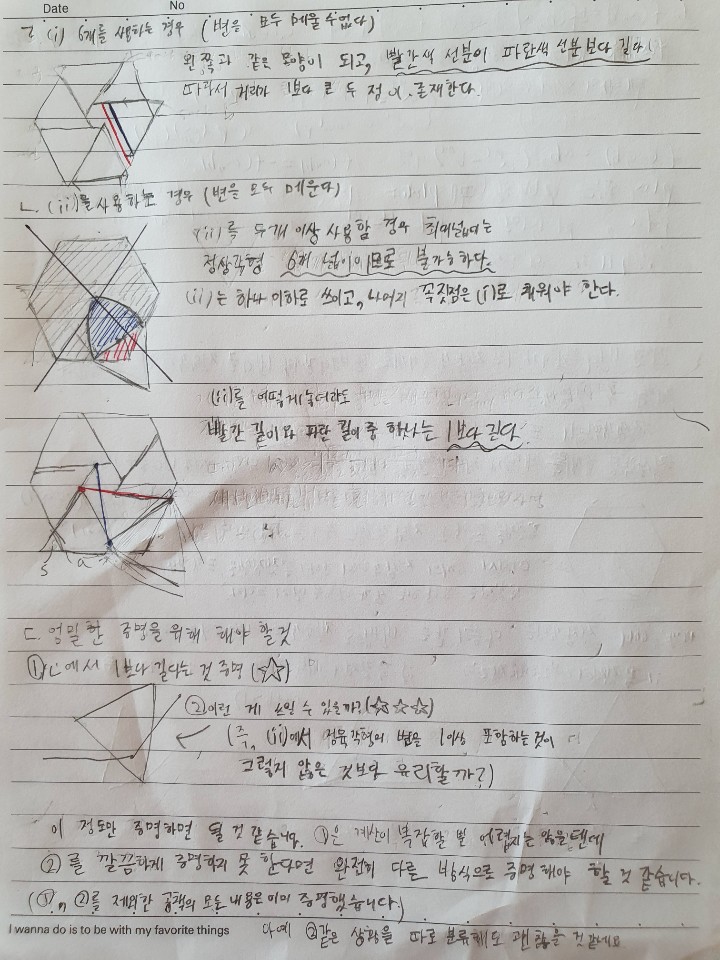 Date No
ㄱ. (i) 6개를 사용하는 경우 (변을 모두 메울 수 없다)
왼쪽과 같은 모양이 되고, 빨간색 선분이 파란색 선분보다 길다.
따라서 거리가 1보다 큰 두 점이 존재한다.
ㄴ. (ii)를 사용하는 경우 (변을 모두 메운다)
(ii)를 두개 이상 사용할 경우 최대넓이는
정삼각형 6개 넓이이므로 불가능하다.
(ii)는 하나 이하로 쓰이고, 나머지 꼭짓점은 (i)로 채워야 한다.
(ii)를 어떻게 놓더라도
빨간 길이와 파란 길이 중 하나는 1보다 길다.
a
ㄷ. 엄밀한 증명을 위해 해야 할 것
① ㄴ에서 1보다 길다는 것 증명 (☆)
② 이런 게 쓰일 수 있을까? (☆☆☆)
(즉, (ii)에서 정육각형의 변을 1이상 포함하는 것이
그렇지 않은 것보다 유리할까?)
이 정도만 증명하면 될 것 같습니다. ①은 계산이 복잡할 뿐 어렵지는 않을텐데
②를 깔끔하게 증명하지 못 한다면 완전히 다른 방식으로 증명해야 할 것 같습니다.
(①, ②를 제외한 공책의 모든 내용은 이미 증명했습니다.)
I wanna do is to be with my favorite things 아예 ②같은 상황을 따로 분류해도 괜찮을 것 같네요